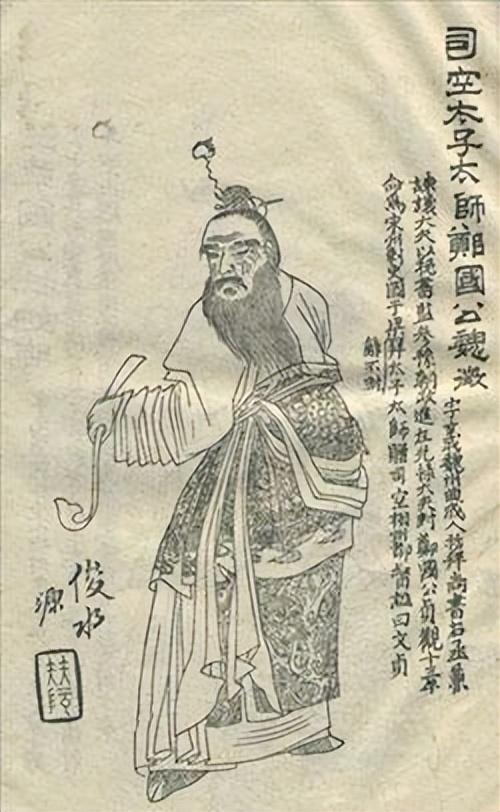 司空太子太師鄭國公魏徵 字玄成魏州曲成人初拜尚書右丞兼
諫議大夫以秘書監參豫朝政進左光祿大夫封鄭國公貞觀十年
命為 拜太子太師贈司空相州都督謚曰文貞
俊水
源